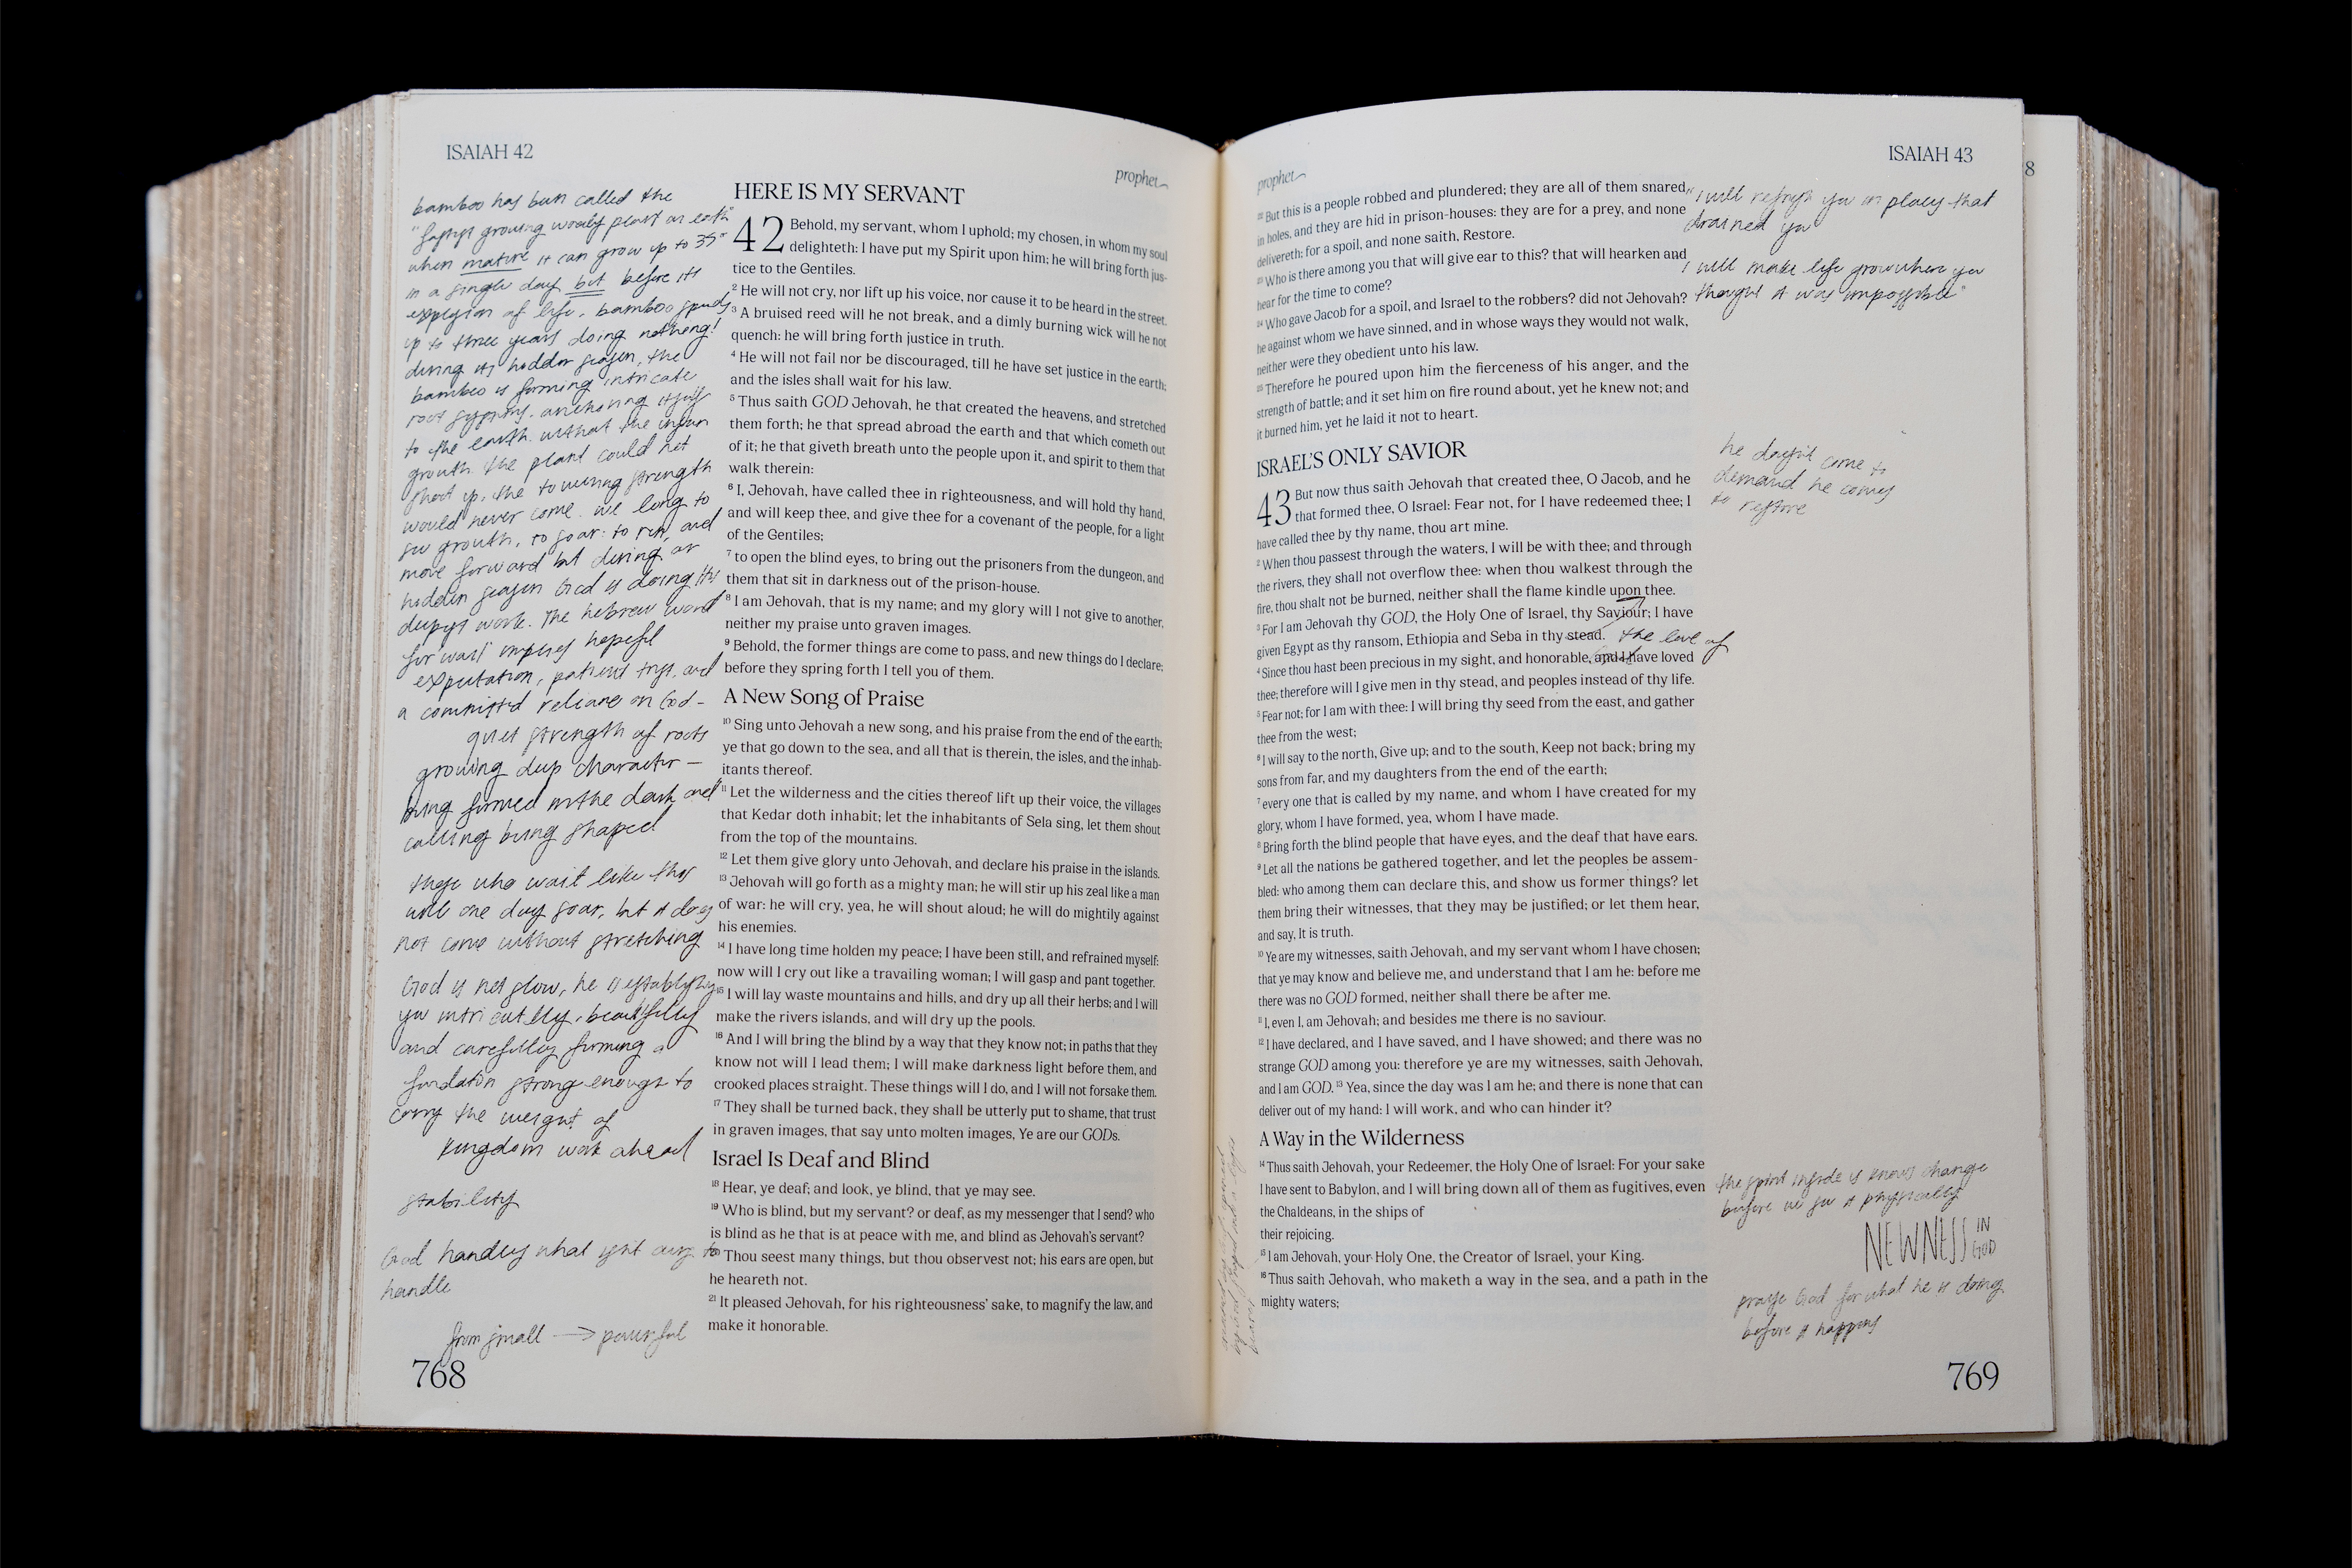 ISAIAH 42
prophet
bamboo has been called the
"fastest growing woody plant on earth"
when mature it can grow up to 35"
in a single day but before its
explosion of life, bamboo spends
up to three years doing nothing!
during its hidden season, the
bamboo is forming intricate
root systems. anchoring itself
to the earth. without the
growth. the plant could not
shoot up. the towering strength
would never come. we long to
see growth, to soar: to run, and
move forward but during our
hidden season God is doing His
deepest work. The hebrew word
for "wait" implies hopeful
expectation, patient trust, and
a committed reliance on God -
quiet strength of roots
growing deep character —
being formed in the dark and
calling being shaped
those who wait like this
will one day soar, but it does
not come without stretching
God is not slow, he is establishing
you intricately, beautifully
and carefully forming a
foundation strong enough to
carry the weight of
kingdom work ahead
stability
God handles what isn't ours to
handle
from small → powerful
768
HERE IS MY SERVANT
42 Behold, my servant, whom I uphold; my chosen, in whom my soul
delighteth: I have put my Spirit upon him; he will bring forth jus-
tice to the Gentiles.
2 He will not cry, nor lift up his voice, nor cause it to be heard in the street.
3 A bruised reed will he not break, and a dimly burning wick will he not
quench: he will bring forth justice in truth.
4 He will not fail nor be discouraged, till he have set justice in the earth;
and the isles shall wait for his law.
5 Thus saith GOD Jehovah, he that created the heavens, and stretched
them forth; he that spread abroad the earth and that which cometh out
of it; he that giveth breath unto the people upon it, and spirit to them that
walk therein:
6 I, Jehovah, have called thee in righteousness, and will hold thy hand,
and will keep thee, and give thee for a covenant of the people, for a light
of the Gentiles;
7 to open the blind eyes, to bring out the prisoners from the dungeon, and
them that sit in darkness out of the prison-house.
8 I am Jehovah, that is my name; and my glory will I not give to another,
neither my praise unto graven images.
9 Behold, the former things are come to pass, and new things do I declare;
before they spring forth I tell you of them.
A New Song of Praise
10 Sing unto Jehovah a new song, and his praise from the end of the earth;
ye that go down to the sea, and all that is therein, the isles, and the inhab-
itants thereof.
11 Let the wilderness and the cities thereof lift up their voice, the villages
that Kedar doth inhabit; let the inhabitants of Sela sing, let them shout
from the top of the mountains.
12 Let them give glory unto Jehovah, and declare his praise in the islands.
13 Jehovah will go forth as a mighty man; he will stir up his zeal like a man
of war: he will cry, yea, he will shout aloud; he will do mightily against
his enemies.
14 I have long time holden my peace; I have been still, and refrained myself:
now will I cry out like a travailing woman; I will gasp and pant together.
15 I will lay waste mountains and hills, and dry up all their herbs; and I will
make the rivers islands, and will dry up the pools.
16 And I will bring the blind by a way that they know not; in paths that they
know not will I lead them; I will make darkness light before them, and
crooked places straight. These things will I do, and I will not forsake them.
17 They shall be turned back, they shall be utterly put to shame, that trust
in graven images, that say unto molten images, Ye are our GODs.
Israel Is Deaf and Blind
18 Hear, ye deaf; and look, ye blind, that ye may see.
19 Who is blind, but my servant? or deaf, as my messenger that I send? who
is blind as he that is at peace with me, and blind as Jehovah's servant?
20 Thou seest many things, but thou observest not; his ears are open, but
he heareth not.
21 It pleased Jehovah, for his righteousness' sake, to magnify the law, and
make it honorable.
prophet
ISAIAH 43
8
22 But this is a people robbed and plundered; they are all of them snared
in holes, and they are hid in prison-houses: they are for a prey, and none
delivereth; for a spoil, and none saith, Restore.
23 Who is there among you that will give ear to this? that will hearken and
hear for the time to come?
24 Who gave Jacob for a spoil, and Israel to the robbers? did not Jehovah?
he against whom we have sinned, and in whose ways they would not walk,
neither were they obedient unto his law.
25 Therefore he poured upon him the fierceness of his anger, and the
strength of battle; and it set him on fire round about, yet he knew not; and
it burned him, yet he laid it not to heart.
ISRAEL'S ONLY SAVIOR
43 But now thus saith Jehovah that created thee, O Jacob, and he
that formed thee, O Israel: Fear not, for I have redeemed thee; I
have called thee by thy name, thou art mine.
2 When thou passest through the waters, I will be with thee; and through
the rivers, they shall not overflow thee: when thou walkest through the
fire, thou shalt not be burned, neither shall the flame kindle upon thee.
3 For I am Jehovah thy GOD, the Holy One of Israel, thy Saviour; I have
given Egypt as thy ransom, Ethiopia and Seba in thy stead. the love of
4 Since thou hast been precious in my sight, and honorable, and I have loved
thee; therefore will I give men in thy stead, and peoples instead of thy life.
5 Fear not; for I am with thee: I will bring thy seed from the east, and gather
thee from the west;
6 I will say to the north, Give up; and to the south, Keep not back; bring my
sons from far, and my daughters from the end of the earth;
7 every one that is called by my name, and whom I have created for my
glory, whom I have formed, yea, whom I have made.
8 Bring forth the blind people that have eyes, and the deaf that have ears.
9 Let all the nations be gathered together, and let the peoples be assem-
bled: who among them can declare this, and show us former things? let
them bring their witnesses, that they may be justified; or let them hear,
and say, It is truth.
10 Ye are my witnesses, saith Jehovah, and my servant whom I have chosen;
that ye may know and believe me, and understand that I am he: before me
there was no GOD formed, neither shall there be after me.
11 I, even I, am Jehovah; and besides me there is no saviour.
12 I have declared, and I have saved, and I have showed; and there was no
strange GOD among you: therefore ye are my witnesses, saith Jehovah,
and I am GOD. 13 Yea, since the day was I am he; and there is none that can
deliver out of my hand: I will work, and who can hinder it?
A Way in the Wilderness
14 Thus saith Jehovah, your Redeemer, the Holy One of Israel: For your sake
I have sent to Babylon, and I will bring down all of them as fugitives, even
the Chaldeans, in the ships of
their rejoicing.
15 I am Jehovah, your Holy One, the Creator of Israel, your King.
16 Thus saith Jehovah, who maketh a way in the sea, and a path in the
mighty waters;
"i will refresh you in places that
drained you
i will make life grow where you
thought it was impossible"
he doesn't come to
demand he comes
to restore
the spirit inside us knows change
before we see it physically
NEWNESS IN
GOD
praise God for what he is doing
before it happens
769